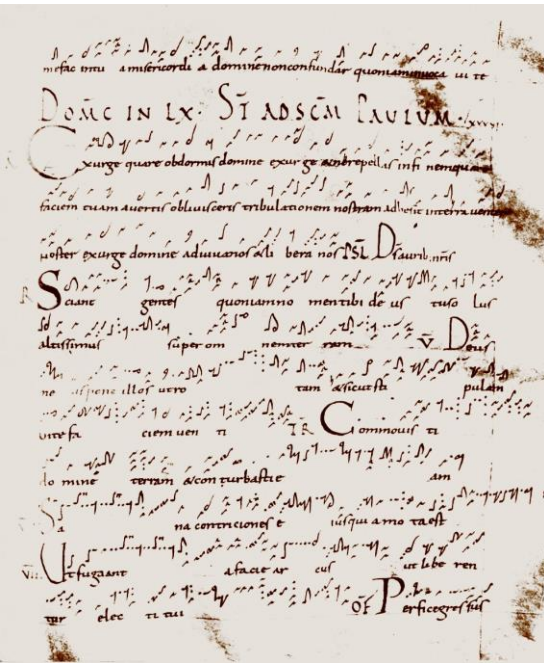 me fac in tu a misericordi a domine non confundar quoniam invoca vi te
DOMC IN LX. ST AD SCM PAULUM.
Exurge quare obdormis domine exur ge & ne repellas in fi nem quare
faciem tuam avertis oblivisceris tribulationem nostram adhesit in terra venter
noster exurge domine adiuva nos & li bera nos PSL Ds auribus nris
R Sciant gentes quoniam no men tibi de us tu so lus
altissimus super om nem ter ram V Deus
ne us pone illos ut ro tam & sicut sti pulam
ante fa ciem ven ti TR Commovis ti
do mine terram & con turbasti e am
Sa na contriciones e ius qui a mo ta est
V Ut fugiant a facie ar cus ut libe ren
tur elec ti tui OF Perfice gressus